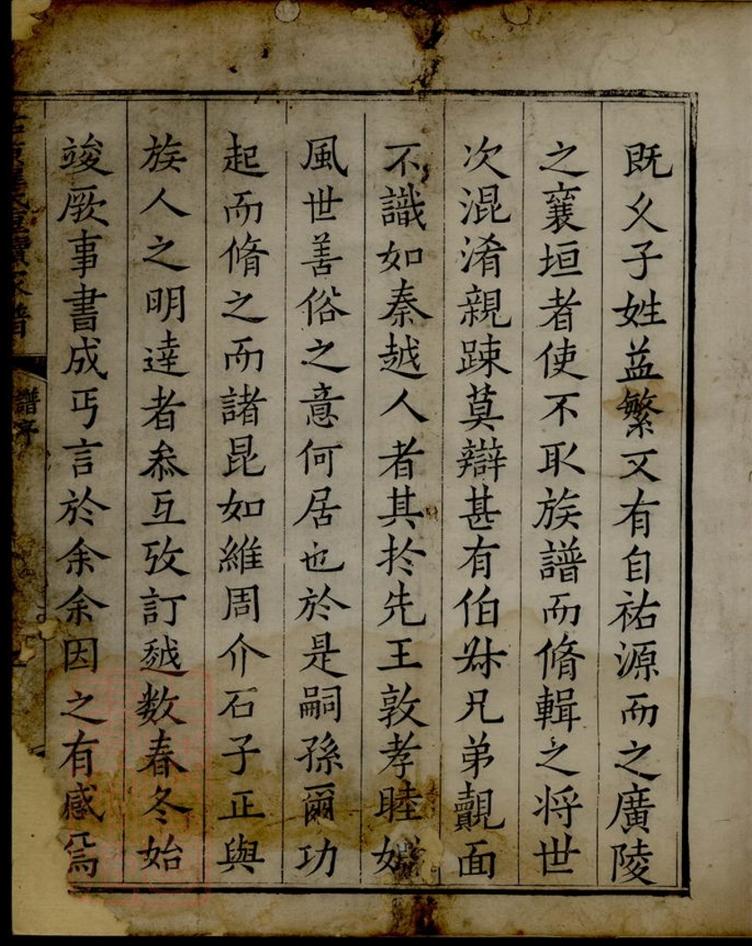 既父子姓益繁又有自祐源而之廣陵
之襄垣者使不取族譜而脩輯之将世
次混淆親踈莫辯甚有伯叔兄弟覿面
不識如秦越人者其扵先王敦孝睦
風世善俗之意何居也於是嗣孫爾功
起而脩之而諸昆如維周介石子正與
族人之明達者叅互攷訂越数春冬始
竣厥事書成丐言於余余因之有感焉
譜序